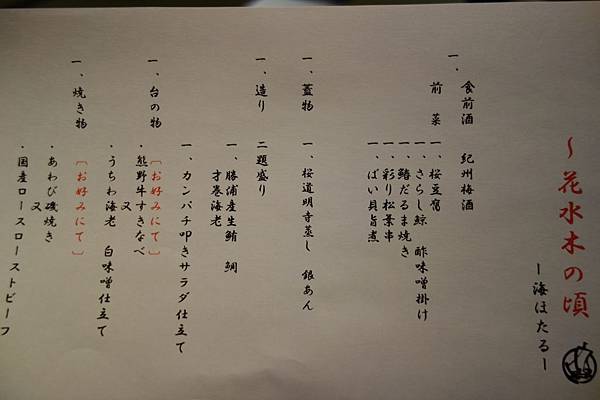 ～花水木の頃
ー海ほたるー
一．食前酒　紀州梅酒
前　菜　一、桜豆腐
一、さらし鯨　酢味噌掛け
一、鰆だるま焼き
一、彩り松葉串
一、ばい貝旨煮
一、蓋物　一、桜道明寺蒸し　銀あん
一、造り　二題盛り
一、勝浦産生鮪　鯛
才巻海老
一、カンパチ叩きサラダ仕立て
一、台の物　〔お好みにて〕
・熊野牛すきなべ
又
・うちわ海老　白味噌仕立て
一、焼き物　〔お好みにて〕
・あわび磯焼き
又
・国産ロースローストビーフ